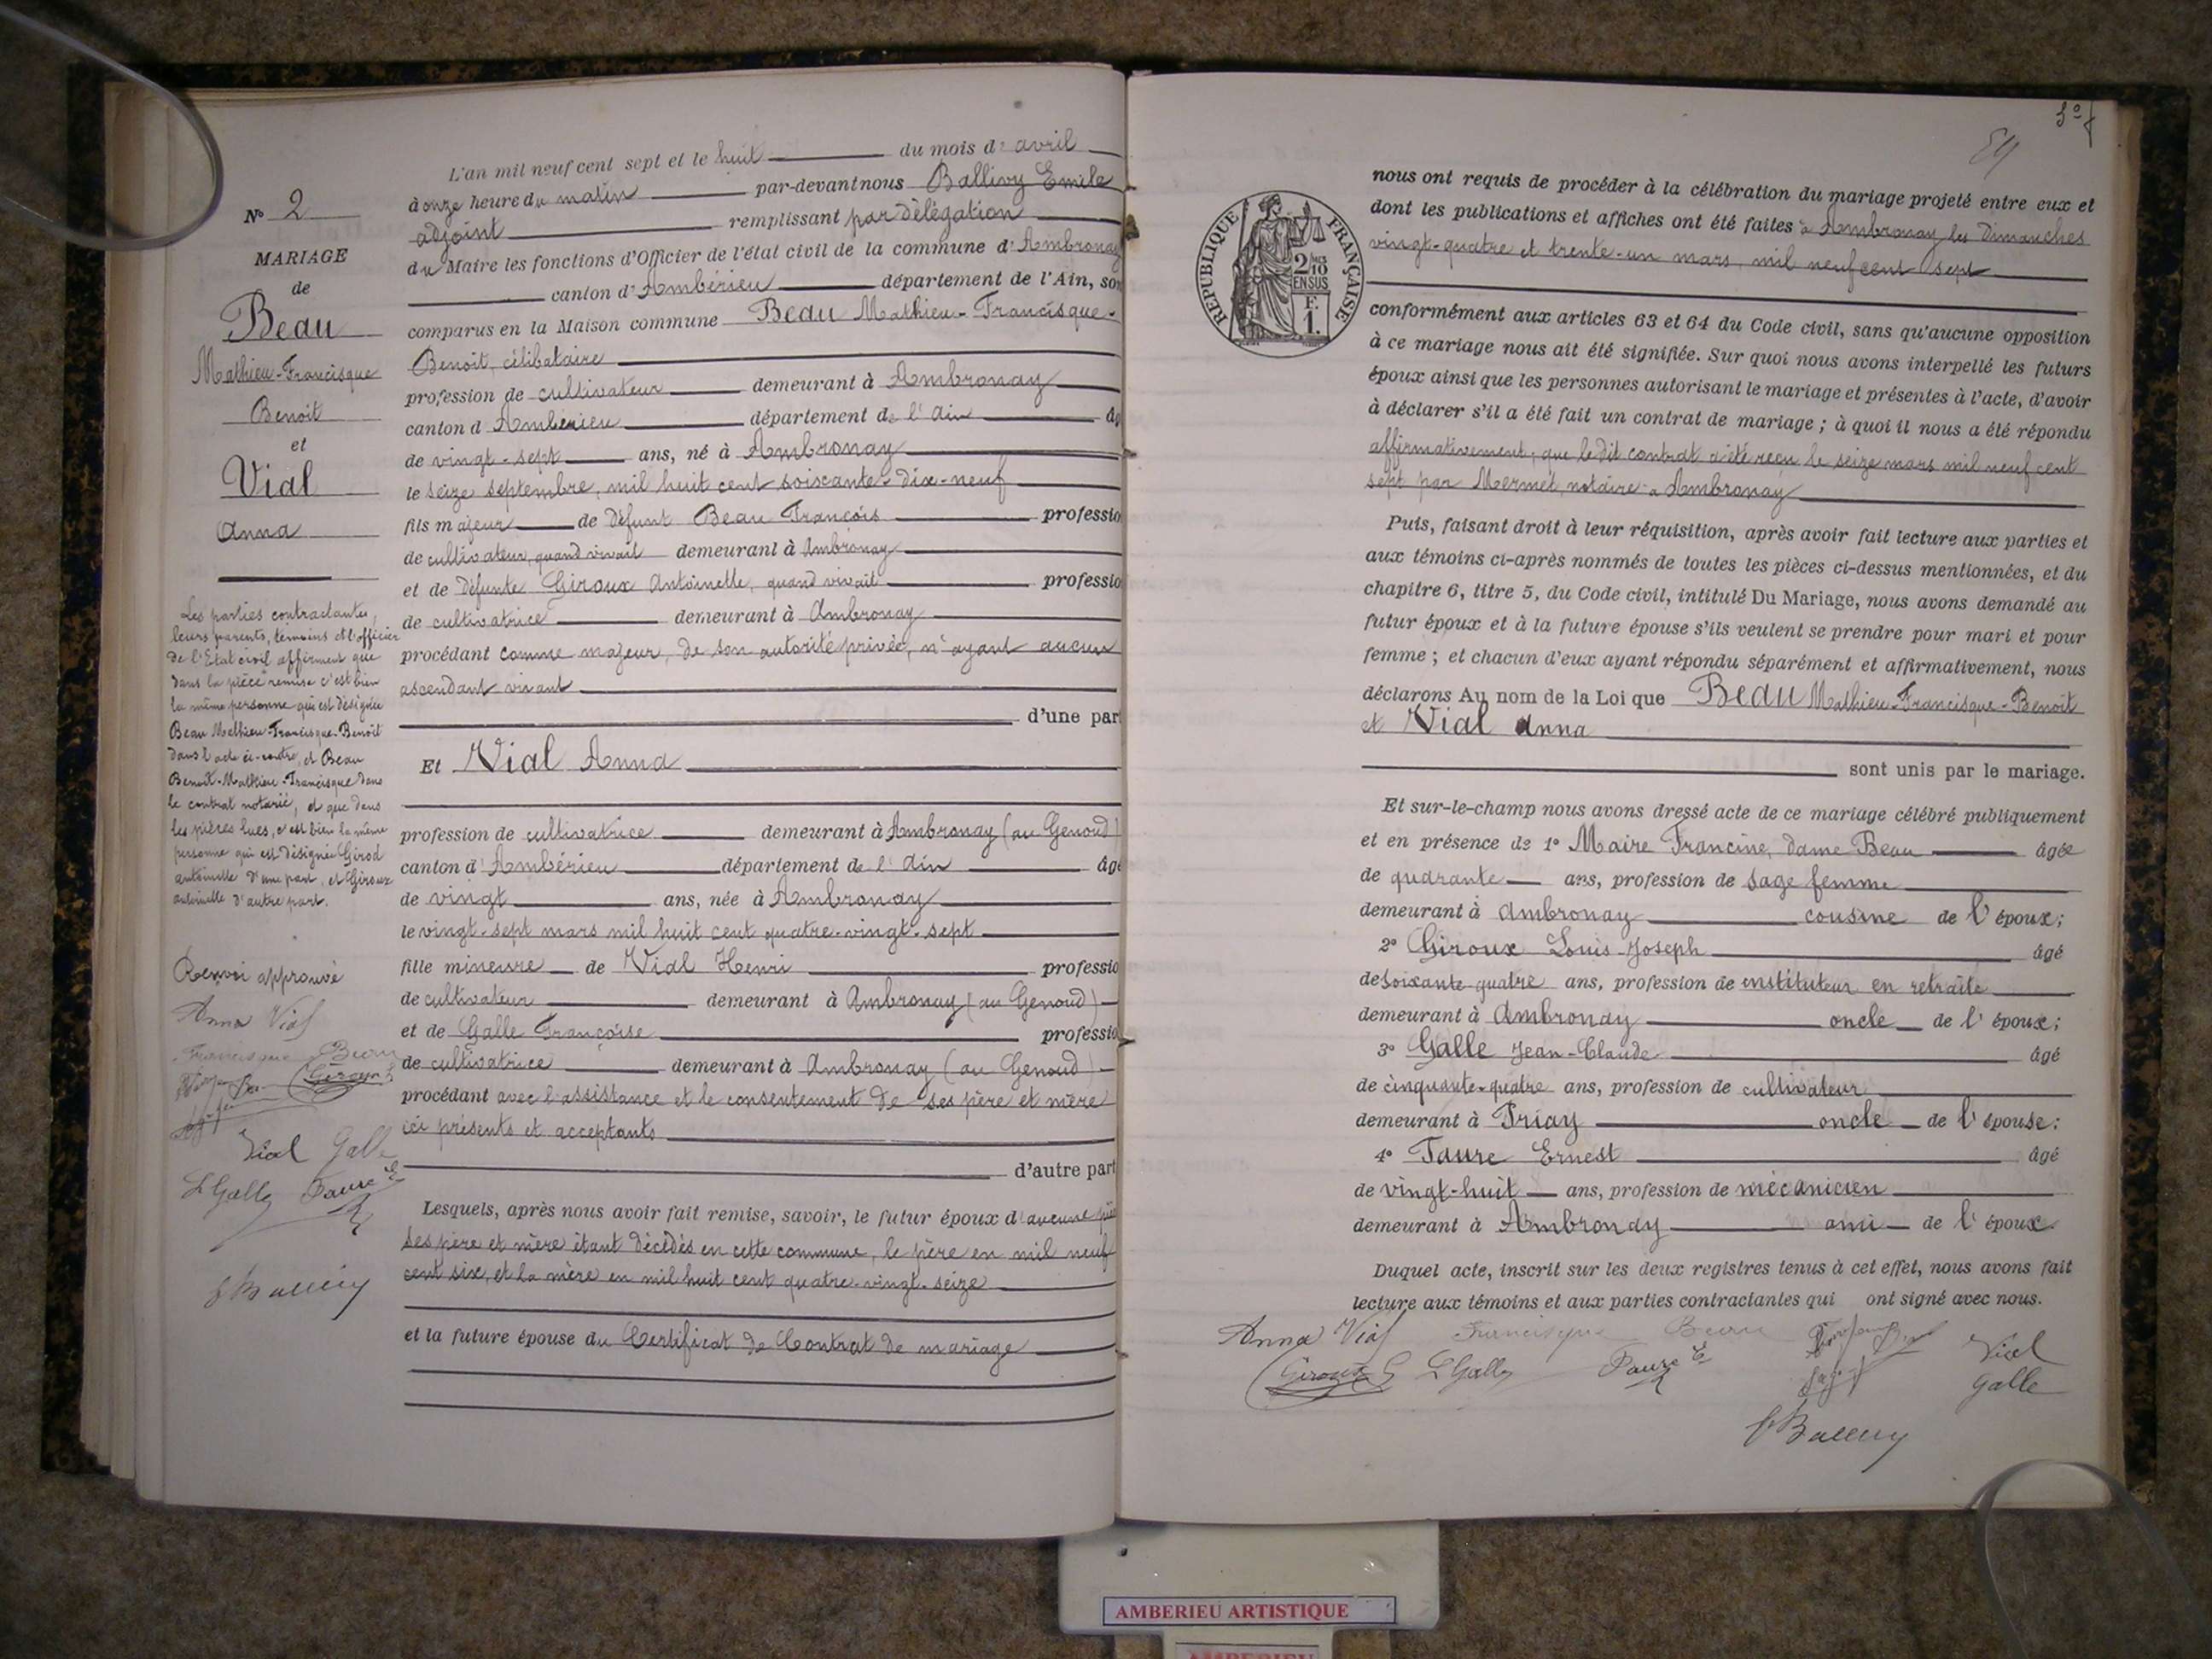 N° 2
MARIAGE
de
Beau
Mathieu-Francisque
Benoit
et
Vial
Anna
Les parties contractantes,
leurs parents, témoins et l'officier
de l'Etat civil affirment que
dans la pièce remise c'est bien
la même personne qui est désignée
Beau Mathieu-Francisque-Benoit
dans l'acte ci-contre, et Beau
Benoit-Mathieu-Francisque dans
le contrat notarié, et que dans
les pièces lues, c'est bien la même
personne qui est désignée Girod
antoinette d'une part, et Giroux
antoinette d'autre part.
Renvoi approuvé
Anna Vial
Francisque Beau
Giroux
Vial Galle
L Galle Faure E
E Ballivy
L'an mil neuf cent sept et le huit du mois d' avril
à onze heure du matin par-devant nous Ballivy Emile
adjoint remplissant par délégation
du Maire les fonctions d'Officier de l'état civil de la commune d' Ambronay
canton d' Ambérieu département de l'Ain, son
comparus en la Maison commune Beau Mathieu-Francisque-
Benoit, célibataire
profession de cultivateur demeurant à Ambronay
canton d Ambérieu département de l'Ain âg
de vingt-sept ans, né à Ambronay
le seize septembre, mil huit cent soixante-dix-neuf
fils majeur de défunt Beau François professio
de cultivateur, quand vivait demeurant à Ambronay
et de défunte Giroux Antoinette, quand vivait professio
de cultivatrice demeurant à Ambronay
procédant comme majeur, de son autorité privée, n'ayant aucun
ascendant vivant
d'une part
Et Vial Anna
profession de cultivatrice demeurant à Ambronay (au Genoud)
canton d' Ambérieu département de l'Ain âgé
de vingt ans, née à Ambronay
le vingt-sept mars mil huit cent quatre-vingt-sept
fille mineure de Vial Henri professio
de cultivateur demeurant à Ambronay (au Genoud)
et de Galle Françoise professio
de cultivatrice demeurant à Ambronay (au Genoud)
procédant avec l'assistance et le consentement de ses père et mère
ici présents et acceptants
d'autre part
Lesquels, après nous avoir fait remise, savoir, le futur époux d'aucune
ses père et mère étant décédés en cette commune, le père en mil neuf
cent six, et la mère en mil huit cent quatre-vingt-seize
et la future épouse du Certificat de Contrat de mariage
89
RÉPUBLIQUE FRANÇAISE
2/10 EN SUS
F. 1.
nous ont requis de procéder à la célébration du mariage projeté entre eux et
dont les publications et affiches ont été faites à Ambronay les dimanches
vingt-quatre et trente-un mars mil neuf cent sept
conformément aux articles 63 et 64 du Code civil, sans qu'aucune opposition
à ce mariage nous ait été signifiée. Sur quoi nous avons interpellé les futurs
époux ainsi que les personnes autorisant le mariage et présentes à l'acte, d'avoir
à déclarer s'il a été fait un contrat de mariage ; à quoi il nous a été répondu
affirmativement ; que le dit contrat a été reçu le seize mars mil neuf cent
sept par Mermet, notaire à Ambronay
Puis, faisant droit à leur réquisition, après avoir fait lecture aux parties et
aux témoins ci-après nommés de toutes les pièces ci-dessus mentionnées, et du
chapitre 6, titre 5, du Code civil, intitulé Du Mariage, nous avons demandé au
futur époux et à la future épouse s'ils veulent se prendre pour mari et pour
femme ; et chacun d'eux ayant répondu séparément et affirmativement, nous
déclarons Au nom de la Loi que Beau Mathieu-Francisque-Benoit
et Vial Anna
sont unis par le mariage.
Et sur-le-champ nous avons dressé acte de ce mariage célébré publiquement
et en présence de 1° Maire Francine, dame Beau âgée
de quarante ans, profession de sage femme
demeurant à Ambronay cousine de l'époux ;
2° Giroux Louis-Joseph âgé
de soixante-quatre ans, profession de instituteur en retraite
demeurant à Ambronay oncle de l'époux ;
3° Galle Jean-Claude âgé
de cinquante-quatre ans, profession de cultivateur
demeurant à Priay oncle de l'épouse ;
4° Faure Ernest âgé
de vingt-huit ans, profession de mécanicien
demeurant à Ambronay ami de l'époux.
Duquel acte, inscrit sur les deux registres tenus à cet effet, nous avons fait
lecture aux témoins et aux parties contractantes qui ont signé avec nous.
Anna Vial Francisque Beau Vial
Giroux L Galle Faure E Galle
E Ballivy
AMBERIEU ARTISTIQUE
AMBERIEU